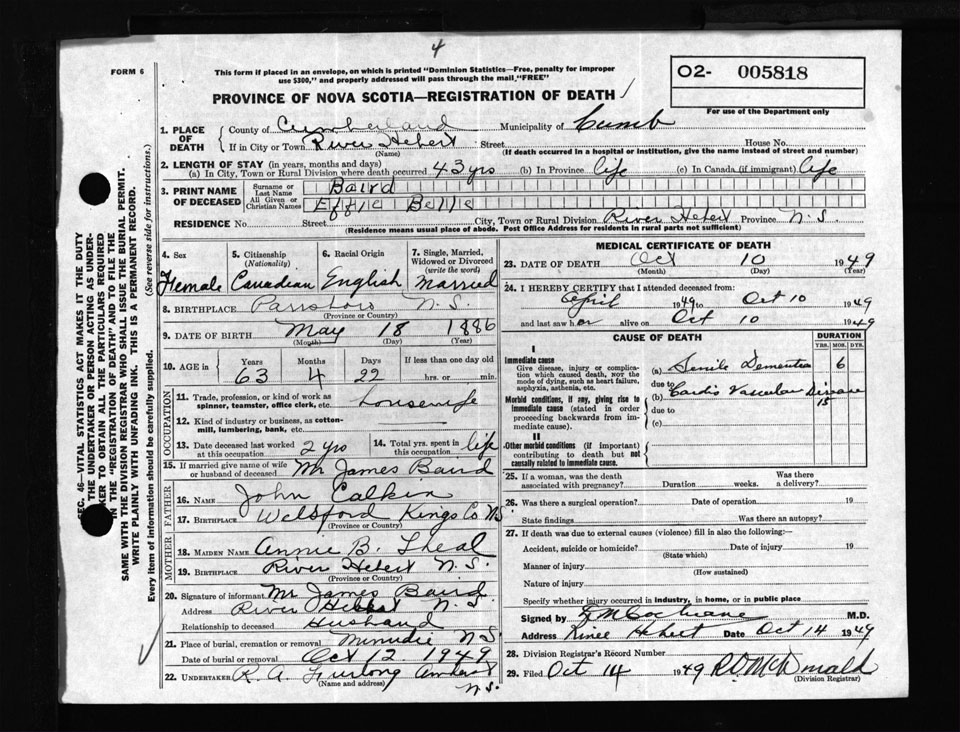 4
FORM 6
This form if placed in an envelope, on which is printed "Dominion Statistics—Free, penalty for improper
use $300," and properly addressed will pass through the mail, "FREE"
O2- 005818
For use of the Department only
PROVINCE OF NOVA SCOTIA—REGISTRATION OF DEATH
1. PLACE OF DEATH
County of Cumberland Municipality of Cumb
If in City or Town River Hebert Street House No.
(Name) (If death occurred in a hospital or institution, give the name instead of street and number)
2. LENGTH OF STAY (in years, months and days)
(a) In City, Town or Rural Division where death occurred 43 yrs (b) In Province life (c) In Canada (if immigrant) life
3. PRINT NAME OF DECEASED
Surname or Last Name Baird
All Given or Christian Names Effie Belle
RESIDENCE No. Street City, Town or Rural Division River Hebert Province N.S.
(Residence means usual place of abode. Post Office Address for residents in rural parts not sufficient)
4. Sex 5. Citizenship (Nationality) 6. Racial Origin 7. Single, Married, Widowed or Divorced (write the word)
Female Canadian English Married
8. BIRTHPLACE Parrsboro N.S.
(Province or Country)
9. DATE OF BIRTH May 18 1886
(Month) (Day) (Year)
10. AGE in Years Months Days If less than one day old
63 4 22 hrs. or min.
OCCUPATION
11. Trade, profession, or kind of work as spinner, teamster, office clerk, etc. housewife
12. Kind of industry or business, as cotton-mill, lumbering, bank, etc.
13. Date deceased last worked at this occupation 2 yrs 14. Total yrs. spent in this occupation life
15. If married give name of wife or husband of deceased Mr James Baird
FATHER
16. NAME John Calkin
17. BIRTHPLACE Welsford Kings Co NS
(Province or Country)
MOTHER
18. MAIDEN NAME Annie B. Sheal
19. BIRTHPLACE River Hebert N.S.
(Province or Country)
20. Signature of informant Mr James Baird
Address River Hebert N.S.
Relationship to deceased Husband
21. Place of burial, cremation or removal Minudie N.S
Date of burial or removal Oct 12 1949
22. UNDERTAKER R. A. Furlong Amherst
(Name and address) N.S.
MEDICAL CERTIFICATE OF DEATH
23. DATE OF DEATH Oct 10 1949
(Month) (Day) (Year)
24. I HEREBY CERTIFY that I attended deceased from:
April 1949 to Oct 10 1949
and last saw her alive on Oct 10 1949
CAUSE OF DEATH DURATION
YRS. MOS. DYS.
I
Immediate cause
Give disease, injury or complication which caused death, NOT the mode of dying, such as heart failure, asphyxia, asthenia, etc.
(a) Senile Dementia 6
due to
Morbid conditions, if any, giving rise to immediate cause (stated in order proceeding backwards from immediate cause).
(b) Cardio Vascular Disease 15
due to
(c)
II
Other morbid conditions (if important) contributing to death but not causally related to immediate cause.
25. If a woman, was the death associated with pregnancy? Duration weeks. Was there a delivery?
26. Was there a surgical operation? Date of operation 19
State findings Was there an autopsy?
27. If death was due to external causes (violence) fill in also the following:—
Accident, suicide or homicide? Date of injury 19
(State which)
Manner of injury
(How sustained)
Nature of injury
Specify whether injury occurred in industry, in home, or in public place
Signed by Cochrane M.D.
Address River Hebert Date Oct 14 1949
28. Division Registrar's Record Number
29. Filed Oct 14 1949 McDonald
(Division Registrar)
SEC. 46—VITAL STATISTICS ACT MAKES IT THE DUTY
OF THE UNDERTAKER OR PERSON ACTING AS UNDER-
KER TO OBTAIN ALL THE PARTICULARS REQUIRED
IN THE "REGISTRATION OF DEATH" AND TO FILE THE
SAME WITH THE DIVISION REGISTRAR WHO SHALL ISSUE THE BURIAL PERMIT.
WRITE PLAINLY WITH UNFADING INK. THIS IS A PERMANENT RECORD.
Every item of information should be carefully supplied. (See reverse side for instructions.)